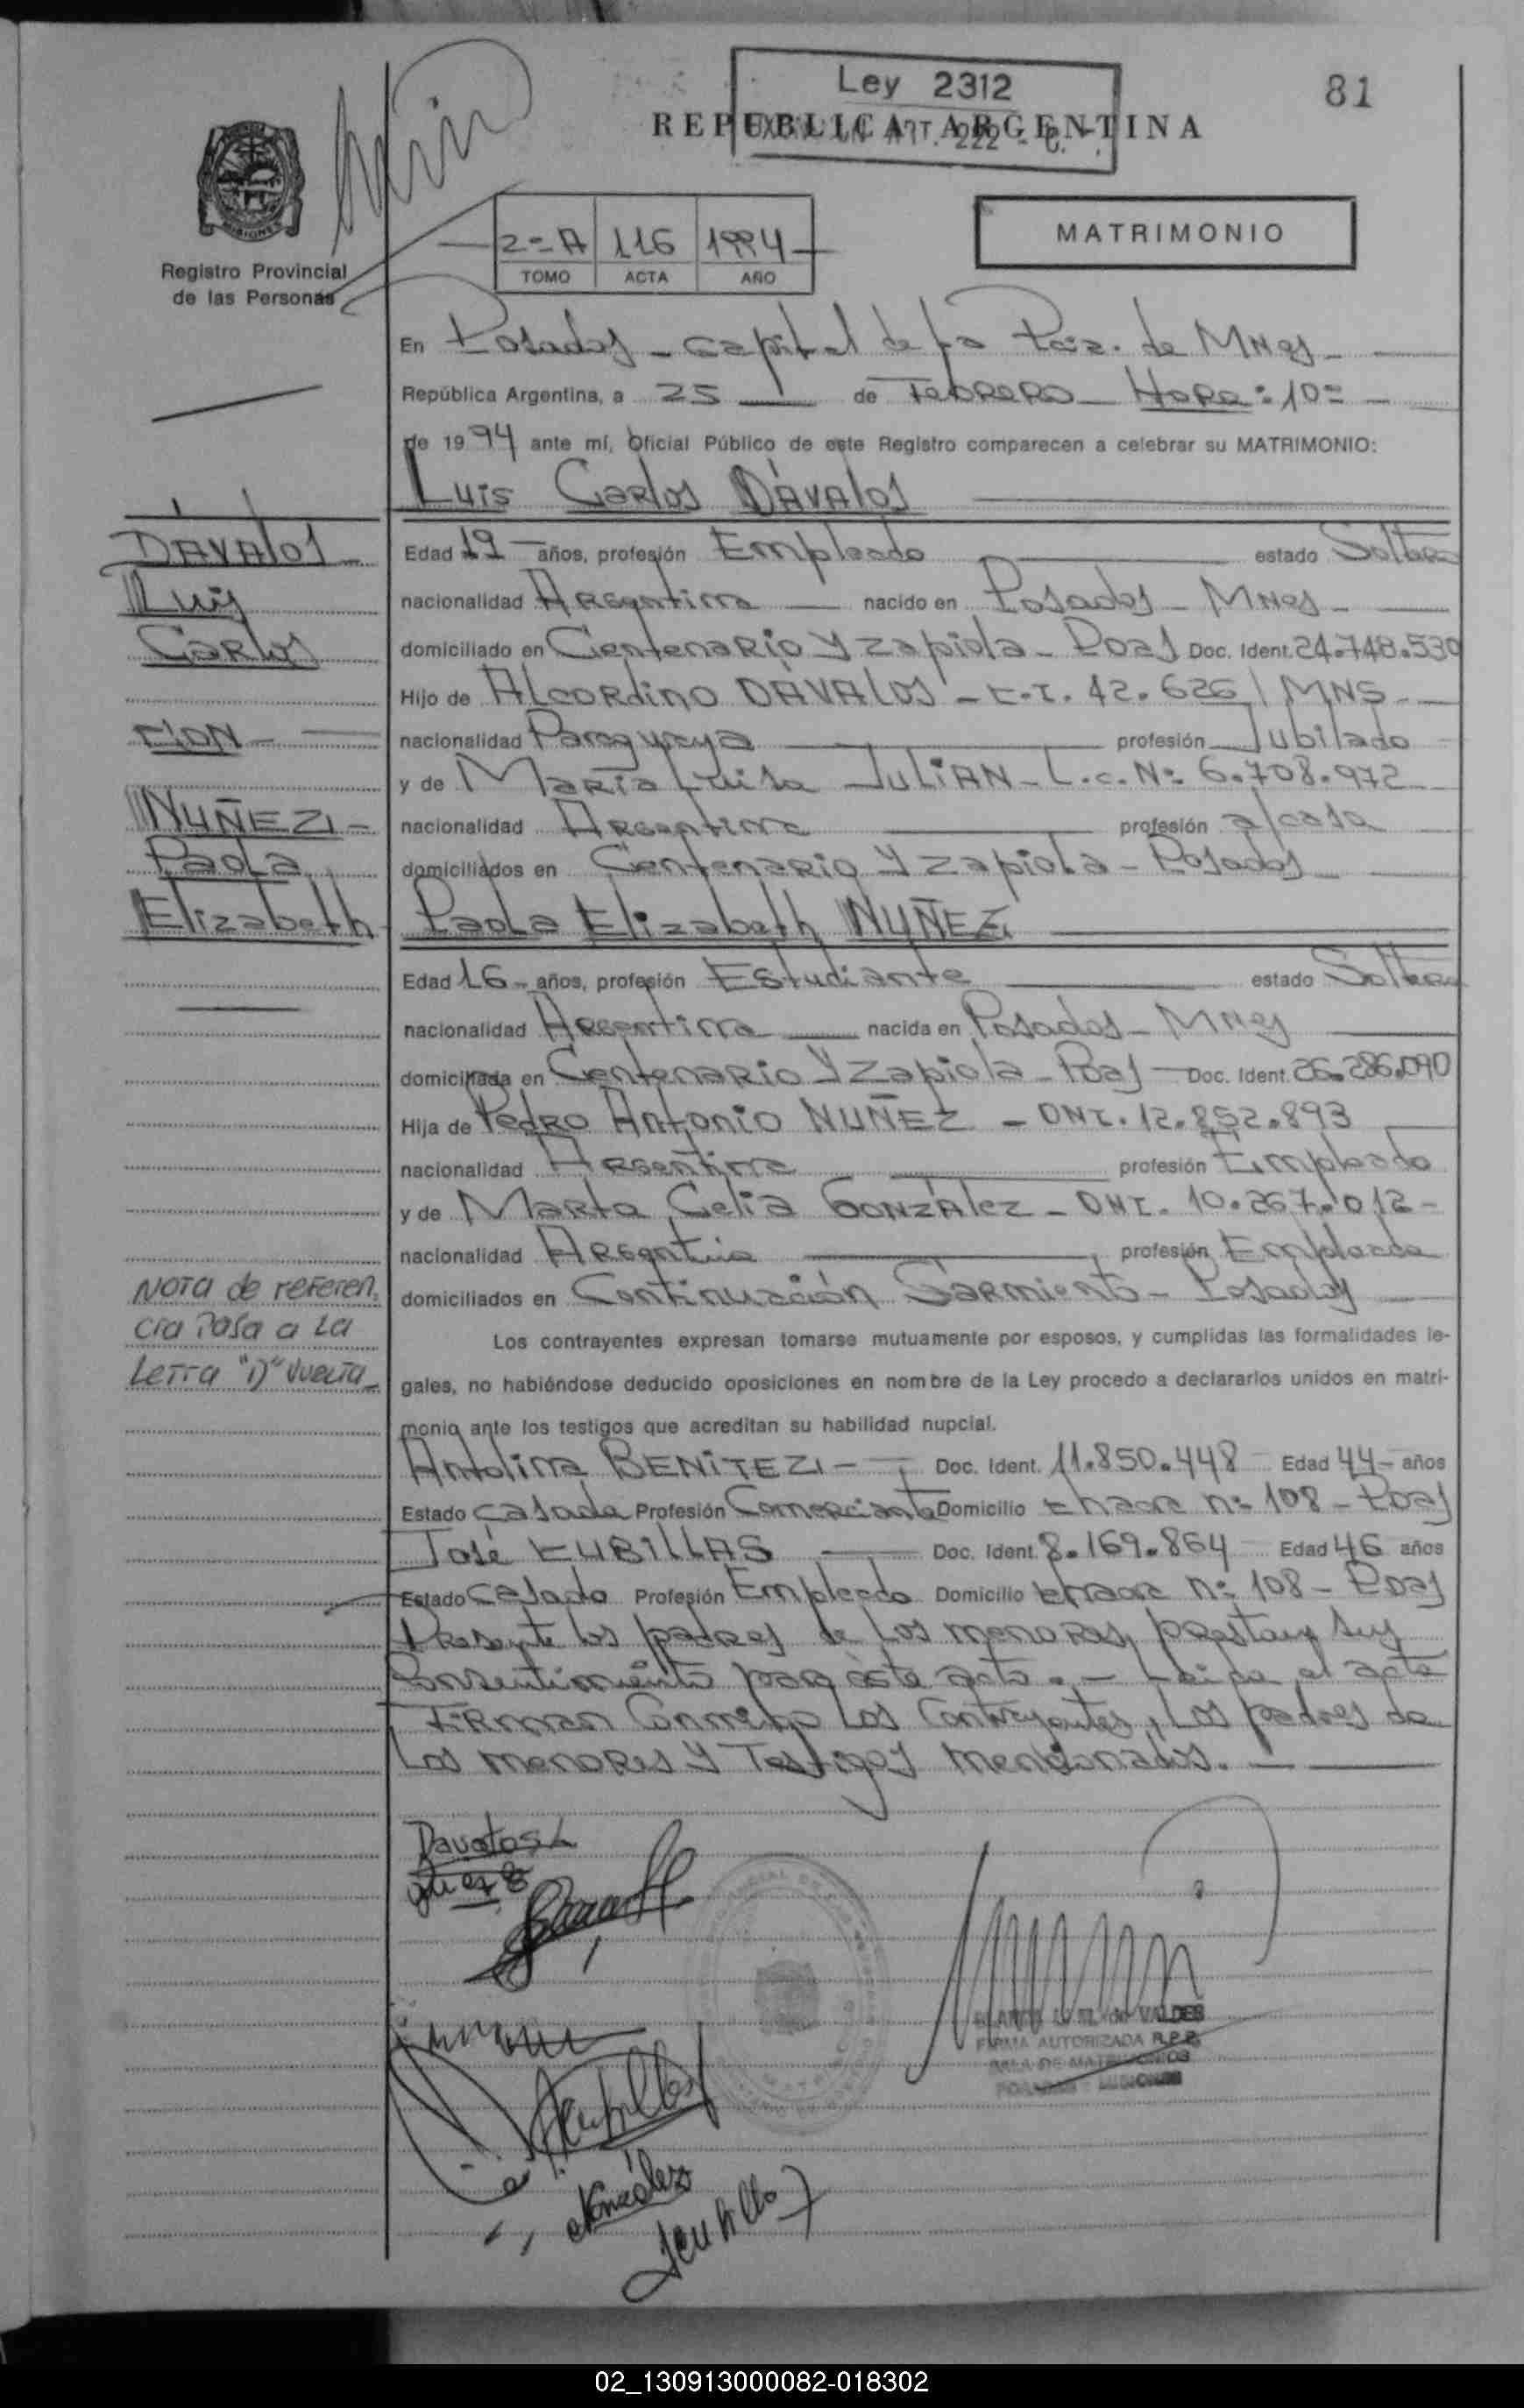 81
Ley 2312
REPUBLICA ARGENTINA
MISIONES
Registro Provincial
de las Personas
2=A 116 1994
TOMO ACTA AÑO
MATRIMONIO
En Posadas - Capital de la Pcia. de Mnes -
República Argentina, a 25 de Febrero - Hora: 10=
de 1994 ante mí, Oficial Público de este Registro comparecen a celebrar su MATRIMONIO:
Luis Carlos DÁVALOS
DÁVALOS
Luis
Carlos
CON -
NUÑEZ -
Paola
Elizabeth
Edad 19 - años, profesión Empleado estado Soltero
nacionalidad Argentina nacido en Posadas - Mnes -
domiciliado en Centenario y Zapiola - Pdas Doc. Ident. 24.748.530
Hijo de Alcordino DÁVALOS - C.I. 42.626 / MNS -
nacionalidad Paraguaya profesión Jubilado
y de María Luisa JULIAN - L.c. Nº 6.708.972
nacionalidad Argentina profesión a/casa
domiciliados en Centenario y Zapiola - Posadas
Paola Elizabeth NUÑEZ
Edad 16 - años, profesión Estudiante estado Soltera
nacionalidad Argentina nacida en Posadas - Mnes
domiciliada en Centenario y Zapiola - Pdas - Doc. Ident. 26.286.090
Hija de Pedro Antonio NUÑEZ - DNI. 12.852.893
nacionalidad Argentina profesión Empleado
y de Marta Celia GONZÁLEZ - DNI. 10.267.012 -
nacionalidad Argentina profesión Empleada
domiciliados en Continuación Sarmiento - Posadas
NOTA de referen.
cia Pasa a La
Letra "D" vuelta
Los contrayentes expresan tomarse mutuamente por esposos, y cumplidas las formalidades le-
gales, no habiéndose deducido oposiciones en nombre de la Ley procedo a declararlos unidos en matri-
monio ante los testigos que acreditan su habilidad nupcial.
Antolina BENITEZ - Doc. Ident. 11.850.448 Edad 44 - años
Estado Casada Profesión Comerciante Domicilio Chacra nº 108 - Pdas
José CUBILLAS Doc. Ident. 8.169.864 Edad 46 años
Estado Casado Profesión Empleado Domicilio Chacra nº 108 - Pdas
Presente los padres de los menores, prestan sus
Consentimiento para éste acto. - Leida el acta
Firman Conmigo Los Contrayentes, Los padres de
Los menores y Testigos mencionados.
Davalos L
González
VALDES
FIRMA AUTORIZADA R.P.P.
SALA DE MATRIMONIOS
POSADAS - MISIONES
02_130913000082-018302